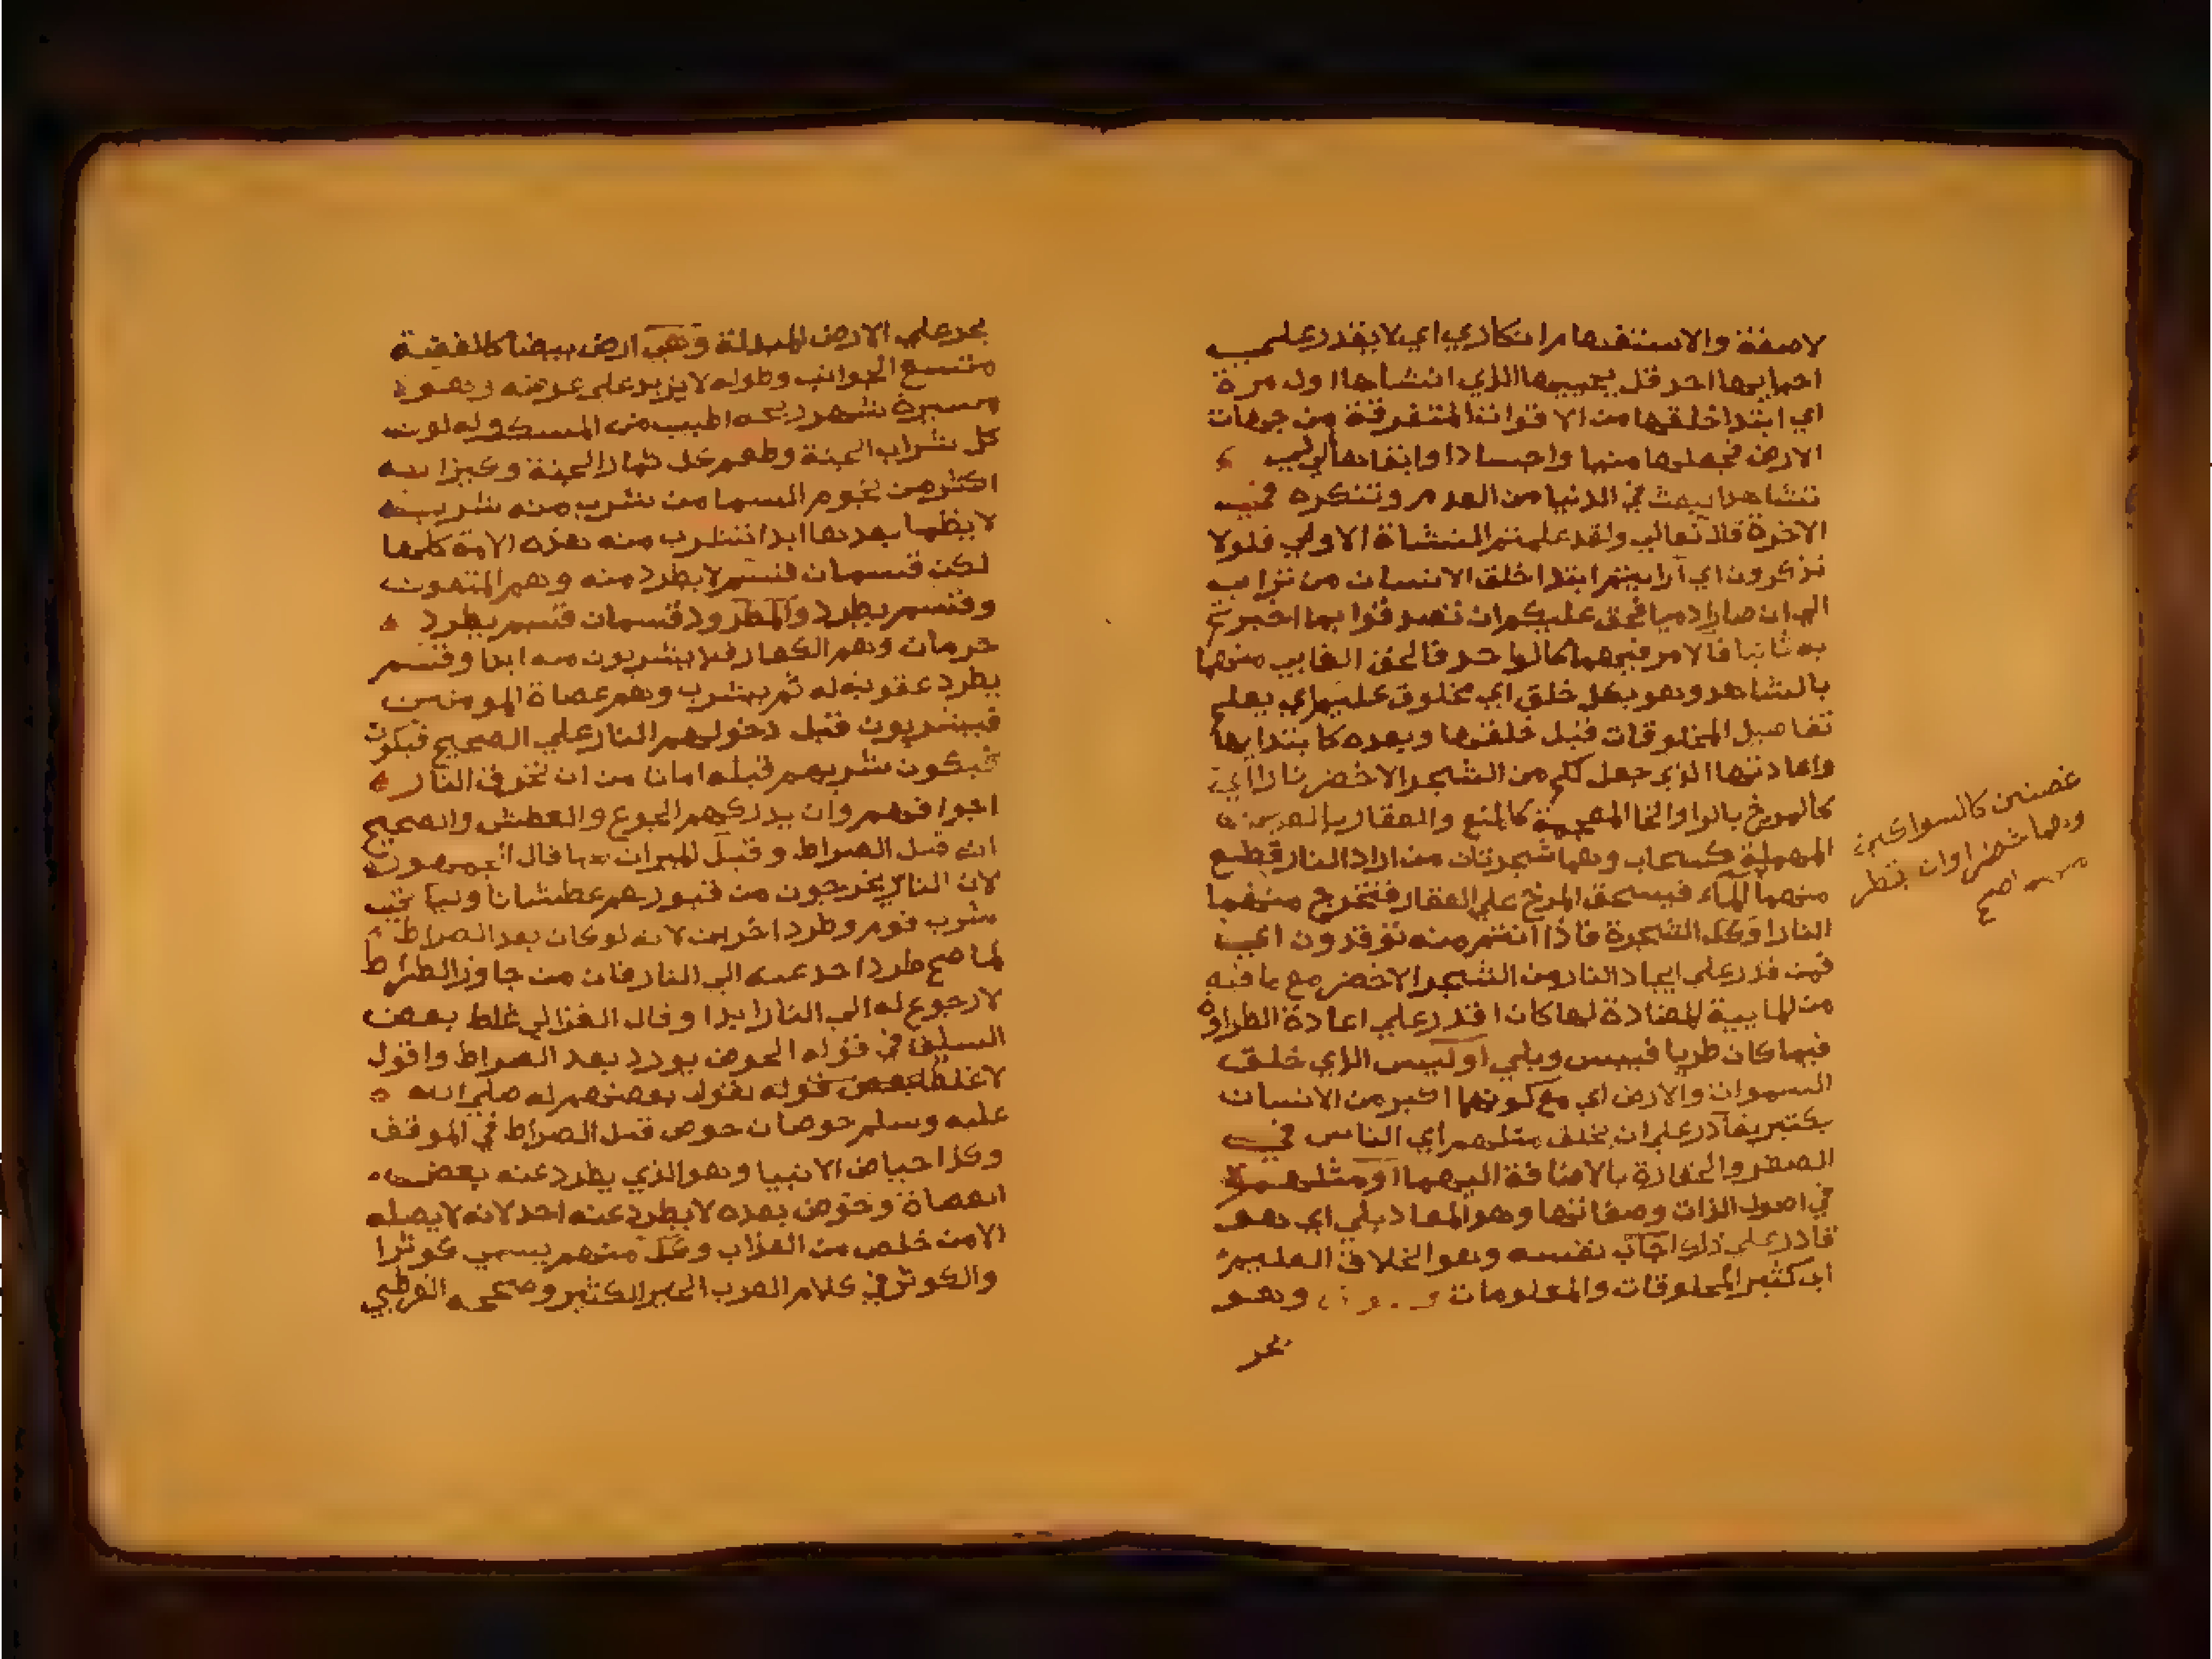 لاصفة والاستفهام انكاري اي لا يقدر علي
احيايها احد قل يحييها الذي انشاها اول مرة
اي ابتدا خلقها من الاقوات المتفرقة من جهات
الارض فجعلها منها واجسادا وابقاها الي
تشاهدا يبعث في الدنيا من العدم وتنكره في
الاخرة قال تعالي ولقد علمتم النشاة الاولي فلولا
تذكرون اي ارايتم ابتدا خلق الانسان من تراب
الي ان صار ادميا فحق عليكم ان تصدقوا بما اخبرتم
به ثانيا فالامر فيهما كالواحد فالحق الغايب منهما
بالشاهد وهو بكل خلق اي مخلوق عليم اي يعلم
تفاصيل المخلوقات قبل خلقها وبعده كابتدايها
واعادتها الذي جعل لكم من الشجر الاخضر نارا اي
كالمرخ بالرا والخا المعجمة والعقار بالعين
المهملة كسحاب وهما شجرتان من اراد النار قطع
منهما الماء فيسحق المرخ علي العقار فتخرج منهما
النار او كل الشجرة فاذا انتم منه توقدون اي
فمن قدر علي ايجاد النار من الشجر الاخضر مع ما فيه
من المايية المضادة لها كان اقدر علي اعادة الطراوة
فيما كان طريا فيبس وبلي اوليس الذي خلق
السموات والارض اي مع كونهما اكبر من الانسان
بكثير بقادر علي ان يخلق مثلهم اي الناس في
الصغر والحقارة بالاضافة اليهما او مثلهم
في اصول الذات وصفاتها وهو المعاد بلي اي هو
قادر علي ذلك اجاب نفسه وهو الخلاق العليم
اي كثير المخلوقات والمعلومات وهو
بحر
غصنين كالسواكين
وهما خضراوان يقطر
صح
بحر علي الارض المبدلة وهي ارض بيضا كالفضة
متسع الجوانب وطوله لا يزيد علي عرضه وهو
مسيرة شهر ريحه اطيب من المسك وله لون
كل شراب الجنة وطعم كل ثمار الجنة وكيزانه
اكثر من نجوم السما من شرب منه شربة
لا يظما بعدها ابدا تشرب منه هذه الامة كلها
لكن قسمان قسم لا يطرد منه وهم المتقون
وقسم يطرد والمطرود قسمان قسم يطرد
حرمان وهم الكفار فلا يشربون منه ابدا وقسم
يطرد عقوبة له ثم يشرب وهم عصاة المومنين
فيشربون قبل دخولهم النار علي الصحيح فيكون
فيكون شربهم قبله امان من ان تحرق النار
اجوافهم وان يدركهم الجوع والعطش والصحيح
انه قبل الصراط وقبل الميزان كما قال الجمهور
لان الناس يخرجون من قبورهم عطشانا
شرب قوم وطرد اخرين لانه لو كان بعد الصراط
لما صح طرد احد عنه الي النار فان من جاوز الصراط
لا رجوع له الي النار ابدا وقال الغزالي غلط بعض
السلف في قوله الحوض يورد بعد الصراط واقول
لا غلط بعض قوله بقول بعضهم له صلي الله
عليه وسلم حوضان حوض قبل الصراط في الموقف
وكذا حياض الانبيا وهو الذي يطرد عنه بعض
العصاة وحوض بعده لا يطرد عنه احد لانه لا يصله
الا من خلص من العذاب وكل منهم يسمي كوثرا
والكوثر في كلام العرب الخير الكثير وصححه القرطبي